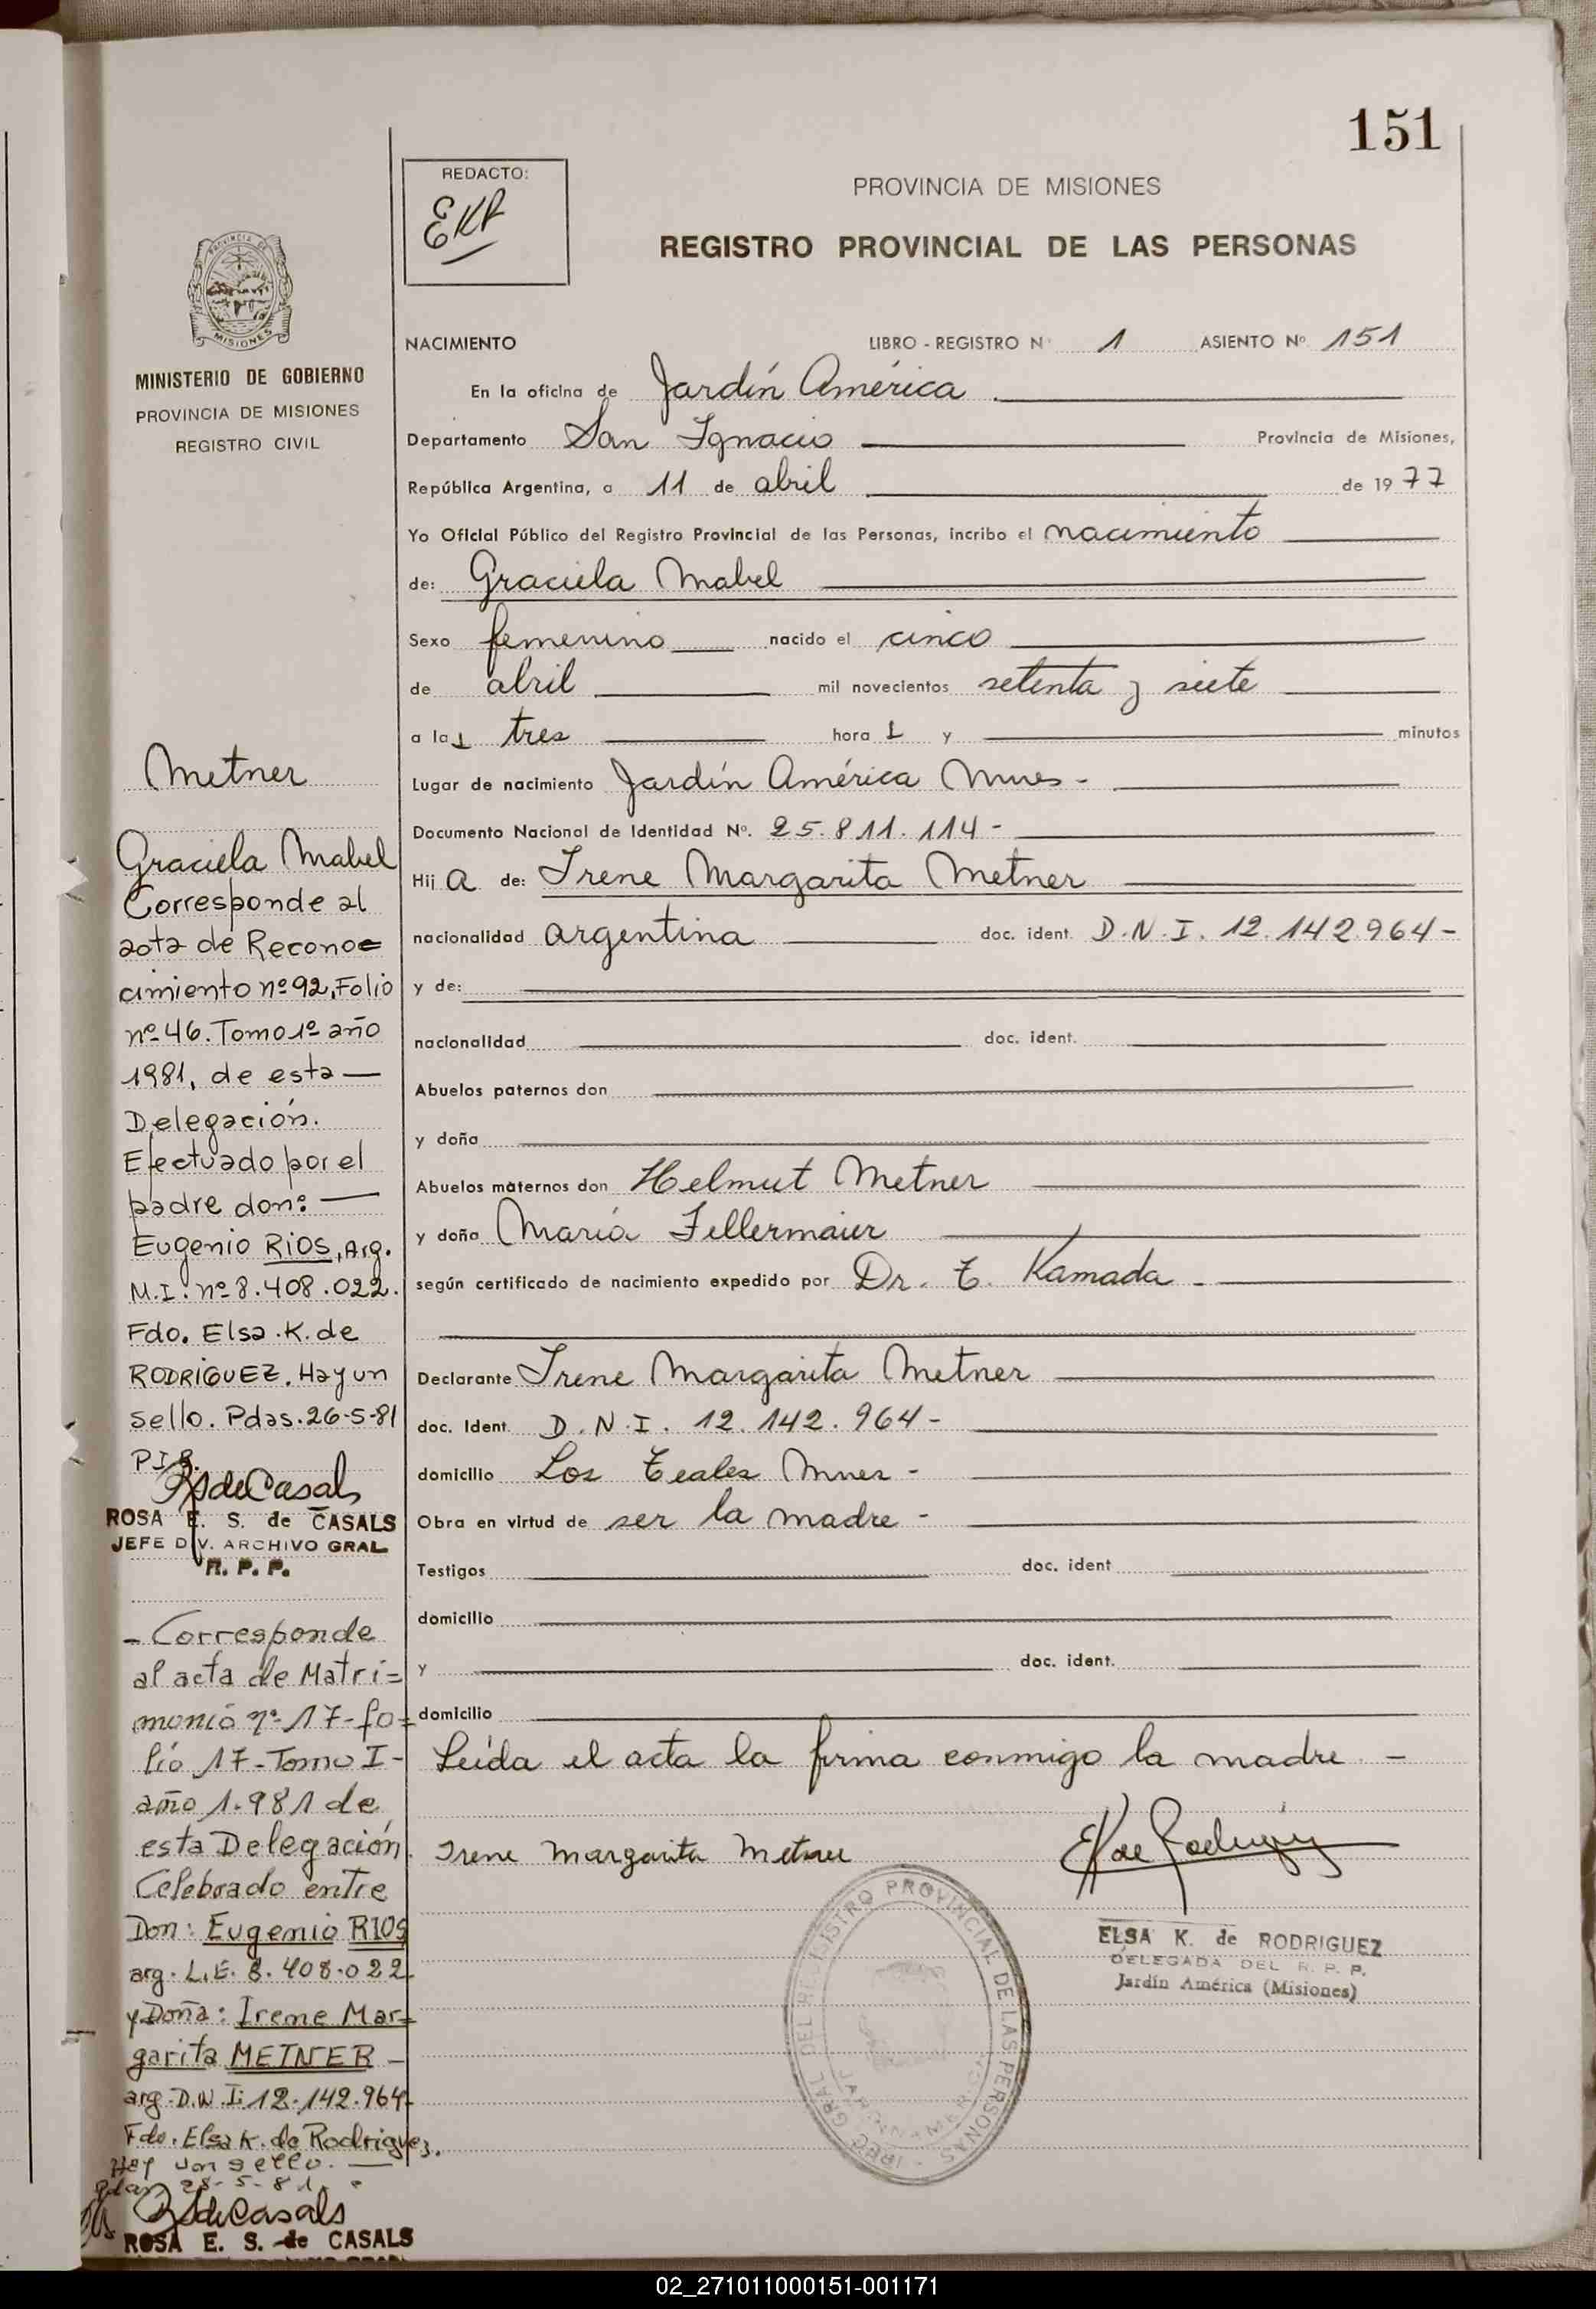 151
REDACTO:
EKR
PROVINCIA DE MISIONES
REGISTRO PROVINCIAL DE LAS PERSONAS
MISIONES
MINISTERIO DE GOBIERNO
PROVINCIA DE MISIONES
REGISTRO CIVIL
NACIMIENTO LIBRO - REGISTRO Nº 1 ASIENTO Nº 151
En la oficina de Jardín América
Departamento San Ignacio Provincia de Misiones,
República Argentina, a 11 de abril de 1977
Yo Oficial Público del Registro Provincial de las Personas, incribo el nacimiento
de: Graciela Mabel
Sexo femenino nacido el cinco
de abril mil novecientos setenta y siete
a las tres hora s y minutos
Lugar de nacimiento Jardín América Mnes -
Documento Nacional de Identidad Nº. 25.811.114-
Hij a de: Irene Margarita Metner
nacionalidad argentina doc. ident. D.N.I. 12.142.964-
y de:
nacionalidad doc. ident.
Abuelos paternos don
y doña
Abuelos maternos don Helmut Metner
y doña María Fellermaier
según certificado de nacimiento expedido por Dr. T. Kamada -
Declarante Irene Margarita Metner
doc. Ident. D.N.I. 12.142.964-
domicilio Los Teales Mnes -
Obra en virtud de ser la madre -
Testigos doc. ident
domicilio
y doc. ident.
domicilio
Leída el acta la firma conmigo la madre -
Irene Margarita Metner
ELSA K. de RODRIGUEZ
DELEGADA DEL R. P. P.
Jardín América (Misiones)
GRAL DEL REGISTRO PROVINCIAL DE LAS PERSONAS
JARDIN AMERICA
Metner
Graciela Mabel
Corresponde al
acta de Recono=
cimiento nº 92, Folio
nº 46. Tomo 1º año
1981, de esta —
Delegación.
Efectuado por el
padre don: —
Eugenio RIOS, Arg.
M.I. nº 8.408.022.
Fdo. Elsa.K.de
RODRIGUEZ. Hay un
sello. Pdas. 26-5-81
RSdeCasals
ROSA E. S. de CASALS
JEFE DIV. ARCHIVO GRAL
R. P. P.
- Corresponde
al acta de Matri=
monio nº 17- fo=
lio 17- Tomo I-
año 1.981 de
esta Delegación.
Celebrado entre
Don: Eugenio RIOS
arg. L.E. 8.408.022
y Doña: Irene Mar=
garita METNER -
arg. D.N.I: 12.142.964-
Fdo. Elsa K. de Rodriguez.
Hay un sello. —
Pdas 28-5-81.
RSdeCasals
ROSA E. S. de CASALS
02_271011000151-001171